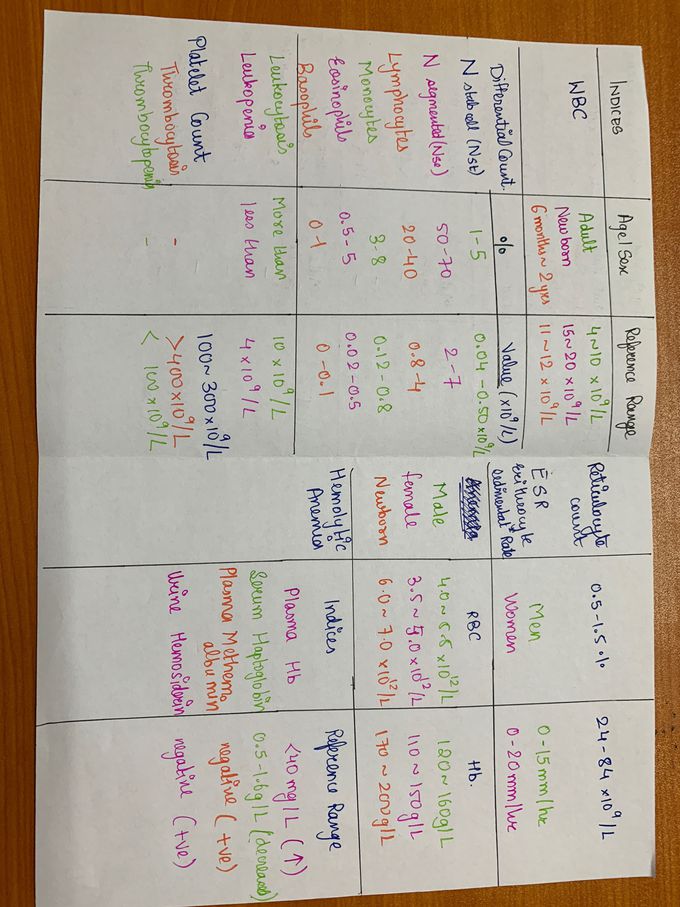 INDICES Age/Sex Reference Range
WBC Adult 4~10 x10⁹/L
Newborn 15~20 x10⁹/L
6 months ~ 2 yrs 11~12 x10⁹/L
Differential Count. % Value (x10⁹/L)
N stab cell (Nst) 1-5 0.04-0.50x10⁹/L
N segmented (Nse) 50-70 2-7
Lymphocytes 20-40 0.8-4
Monocytes 3-8 0.12-0.8
Eosinophils 0.5-5 0.02-0.5
Basophils 0-1 0-0.1
Leukocytosis More than 10x10⁹/L
Leukopenia less than 4x10⁹/L
Platelet Count 100~300x10⁹/L
Thrombocytosis - >400x10⁹/L
Thrombocytopenia - < 100x10⁹/L
Reticulocyte count 0.5-1.5% 24-84 x10⁹/L
ESR Men 0-15mm/hr
Erithrocyte Women 0-20mm/hr
Sedimental Rate
RBC Hb.
Male 4.0~5.5 x10¹²/L 120~160g/L
female 3.5~5.0x10¹²/L 110~150g/L
Newborn 6.0~7.0x10¹²/L 170~200g/L
Hemolytic Indices Reference Range
Anemia
Plasma Hb <40mg/L (↑)
Serum Haptoglobin 0.5-1.6g/L (decreased)
Plasma Methemo negative (+ve)
albumin
Urine Hemosiderin negative (+ve)